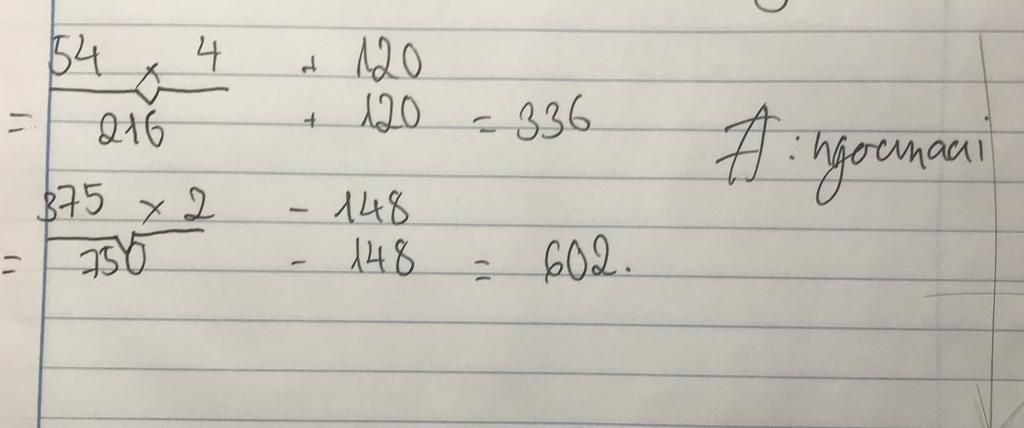 54 x 4 + 120
= 216 + 120 = 336
A : ngocmaai
375 x 2 - 148
= 750 - 148 = 602.